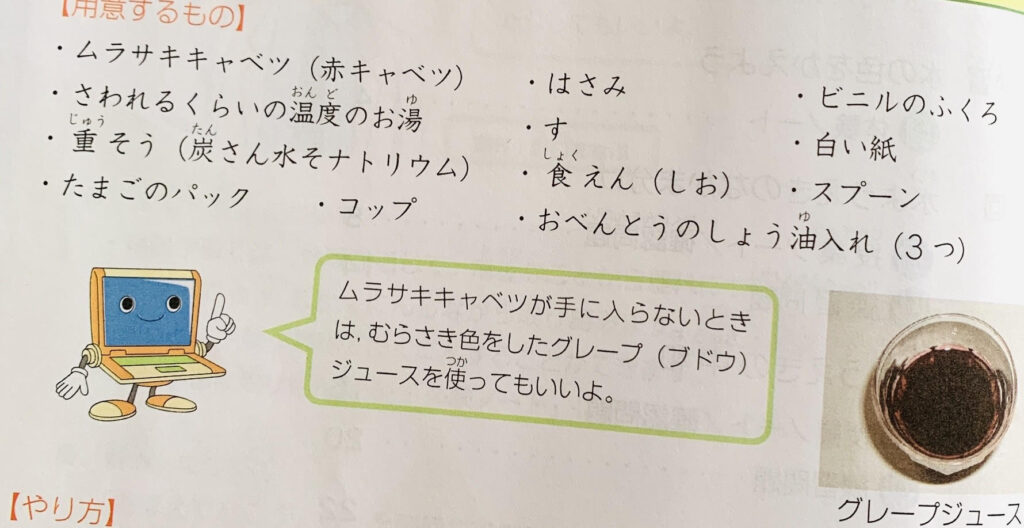 【用意するもの】
・ムラサキキャベツ（赤キャベツ）
・さわれるくらいの温度のお湯
・重そう（炭さん水そナトリウム）
・たまごのパック
・コップ
・はさみ
・す
・食えん（しお）
・おべんとうのしょう油入れ（3つ）
・ビニルのふくろ
・白い紙
・スプーン
ムラサキキャベツが手に入らないとき
は，むらさき色をしたグレープ（ブドウ）
ジュースを使ってもいいよ。
グレープジュース
【やり方】